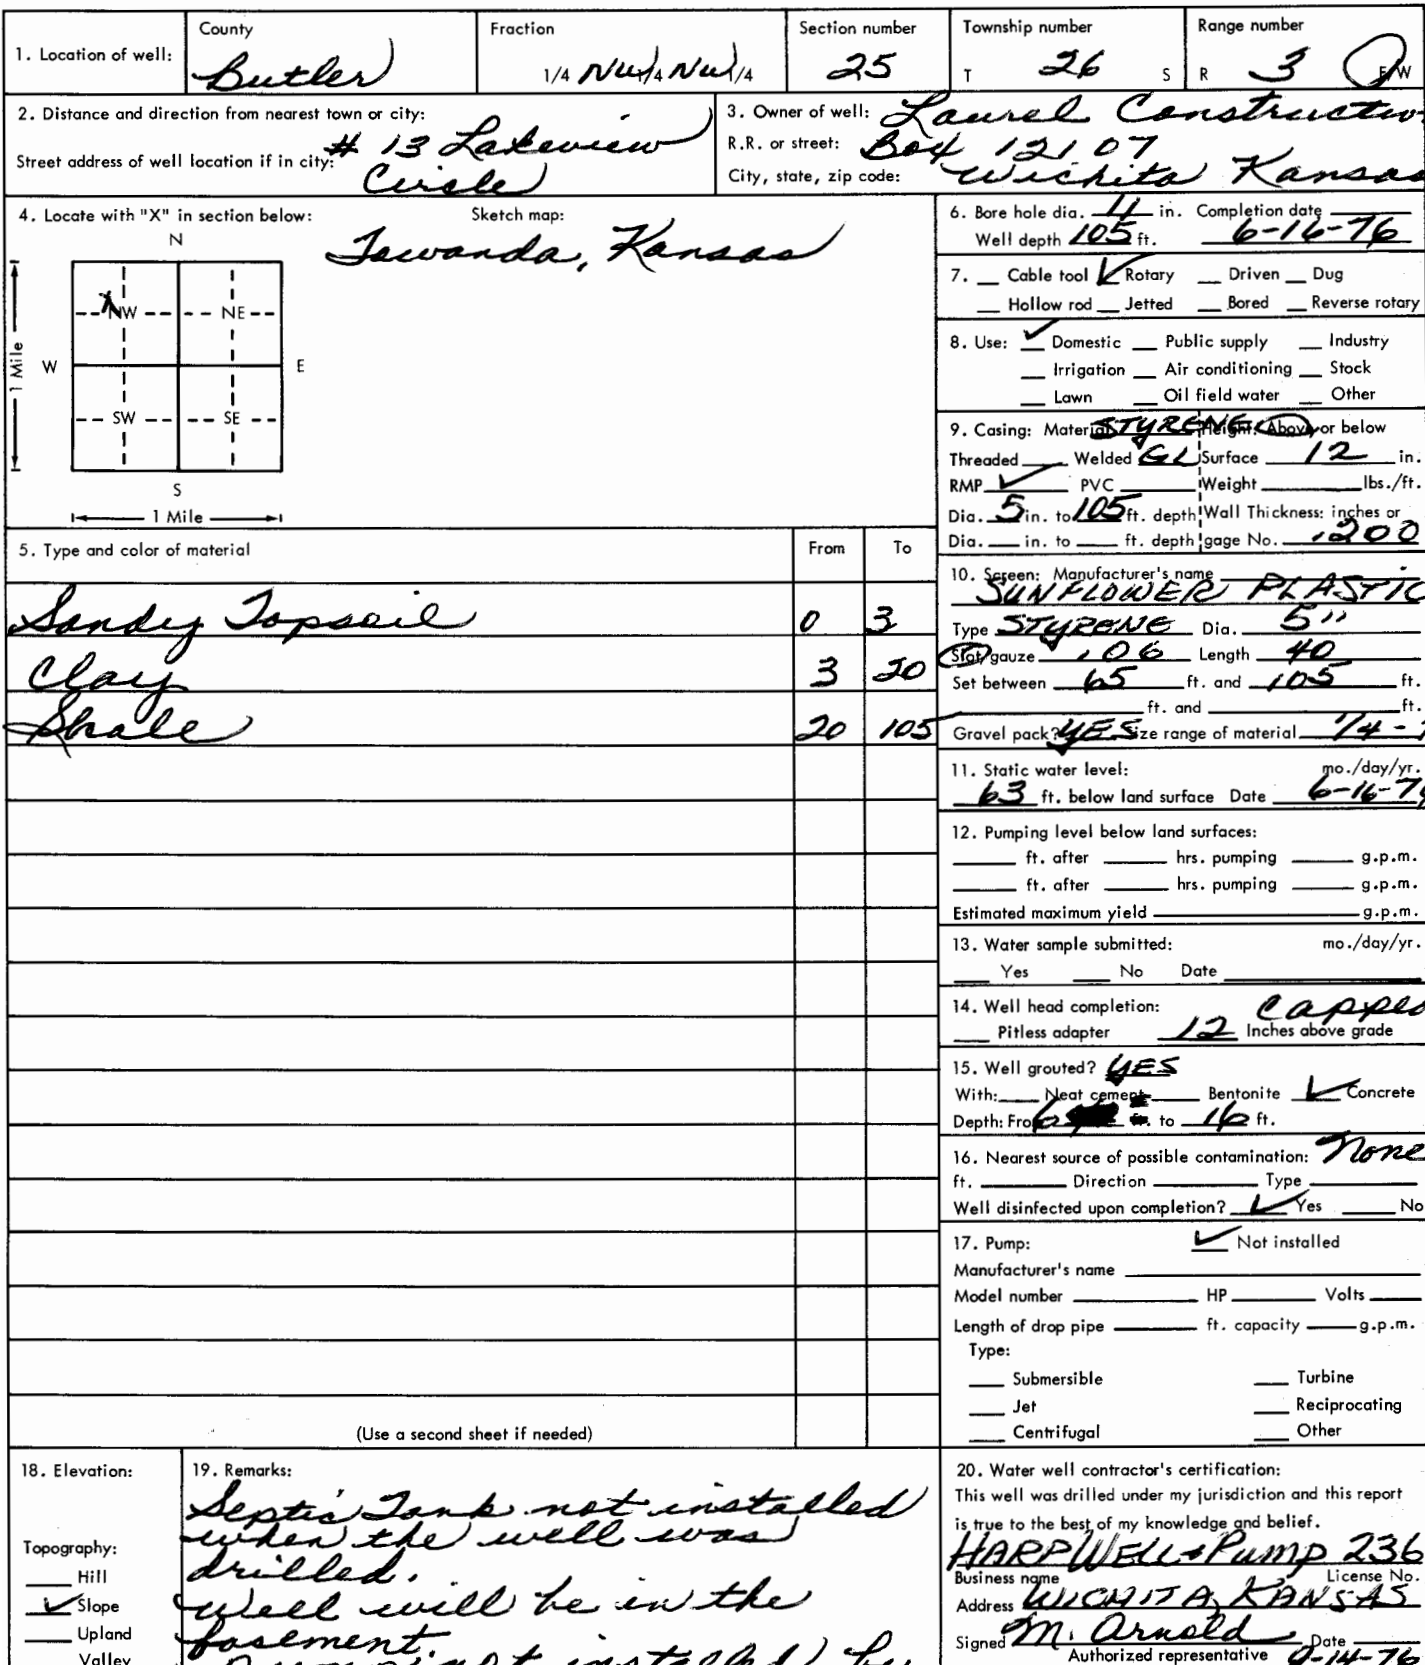 1. Location of well: County Butler Fraction 1/4 NW 1/4 NW 1/4 Section number 25 Township number T 26 S Range number R 3 E/W
2. Distance and direction from nearest town or city: # 13 Lakeview
Street address of well location if in city: Circle
3. Owner of well: Laurel Construction
R.R. or street: Box 12107
City, state, zip code: Wichita Kansas
4. Locate with "X" in section below: Sketch map:
Towanda, Kansas
N
NW NE
W E
1 Mile
SW SE
S
1 Mile
5. Type and color of material From To
Sandy Topsoil 0 3
Clay 3 20
Shale 20 105
(Use a second sheet if needed)
6. Bore hole dia. 11 in. Completion date
Well depth 105 ft. 6-16-76
7. Cable tool ✓ Rotary Driven Dug
Hollow rod Jetted Bored Reverse rotary
8. Use: ✓ Domestic Public supply Industry
Irrigation Air conditioning Stock
Lawn Oil field water Other
9. Casing: Material STYRENE Height: Above or below
Threaded Welded GL Surface 12 in.
RMP ✓ PVC Weight lbs./ft.
Dia. 5 in. to 105 ft. depth Wall Thickness: inches or
Dia. in. to ft. depth gage No. .200
10. Screen: Manufacturer's name
SUNFLOWER PLASTIC
Type STYRENE Dia. 5"
Slot/gauze .06 Length 40
Set between 65 ft. and 105 ft.
ft. and ft.
Gravel pack? YES Size range of material 1/4 -
11. Static water level: mo./day/yr.
63 ft. below land surface Date 6-16-76
12. Pumping level below land surfaces:
ft. after hrs. pumping g.p.m.
ft. after hrs. pumping g.p.m.
Estimated maximum yield g.p.m.
13. Water sample submitted: mo./day/yr.
Yes No Date
14. Well head completion: Capped
Pitless adapter 12 Inches above grade
15. Well grouted? YES
With: Neat cement Bentonite ✓ Concrete
Depth: From 6 ft. to 16 ft.
16. Nearest source of possible contamination: None
ft. Direction Type
Well disinfected upon completion? ✓ Yes No
17. Pump: ✓ Not installed
Manufacturer's name
Model number HP Volts
Length of drop pipe ft. capacity g.p.m.
Type:
Submersible Turbine
Jet Reciprocating
Centrifugal Other
18. Elevation:
Topography:
Hill
✓ Slope
Upland
Valley
19. Remarks:
Septic Tank not installed
when the well was
drilled.
Well will be in the
basement.
Pump not installed by
20. Water well contractor's certification:
This well was drilled under my jurisdiction and this report
is true to the best of my knowledge and belief.
HARP WELL & Pump 236
Business name License No.
Address WICHITA, KANSAS
Signed M. Arnold Date
Authorized representative